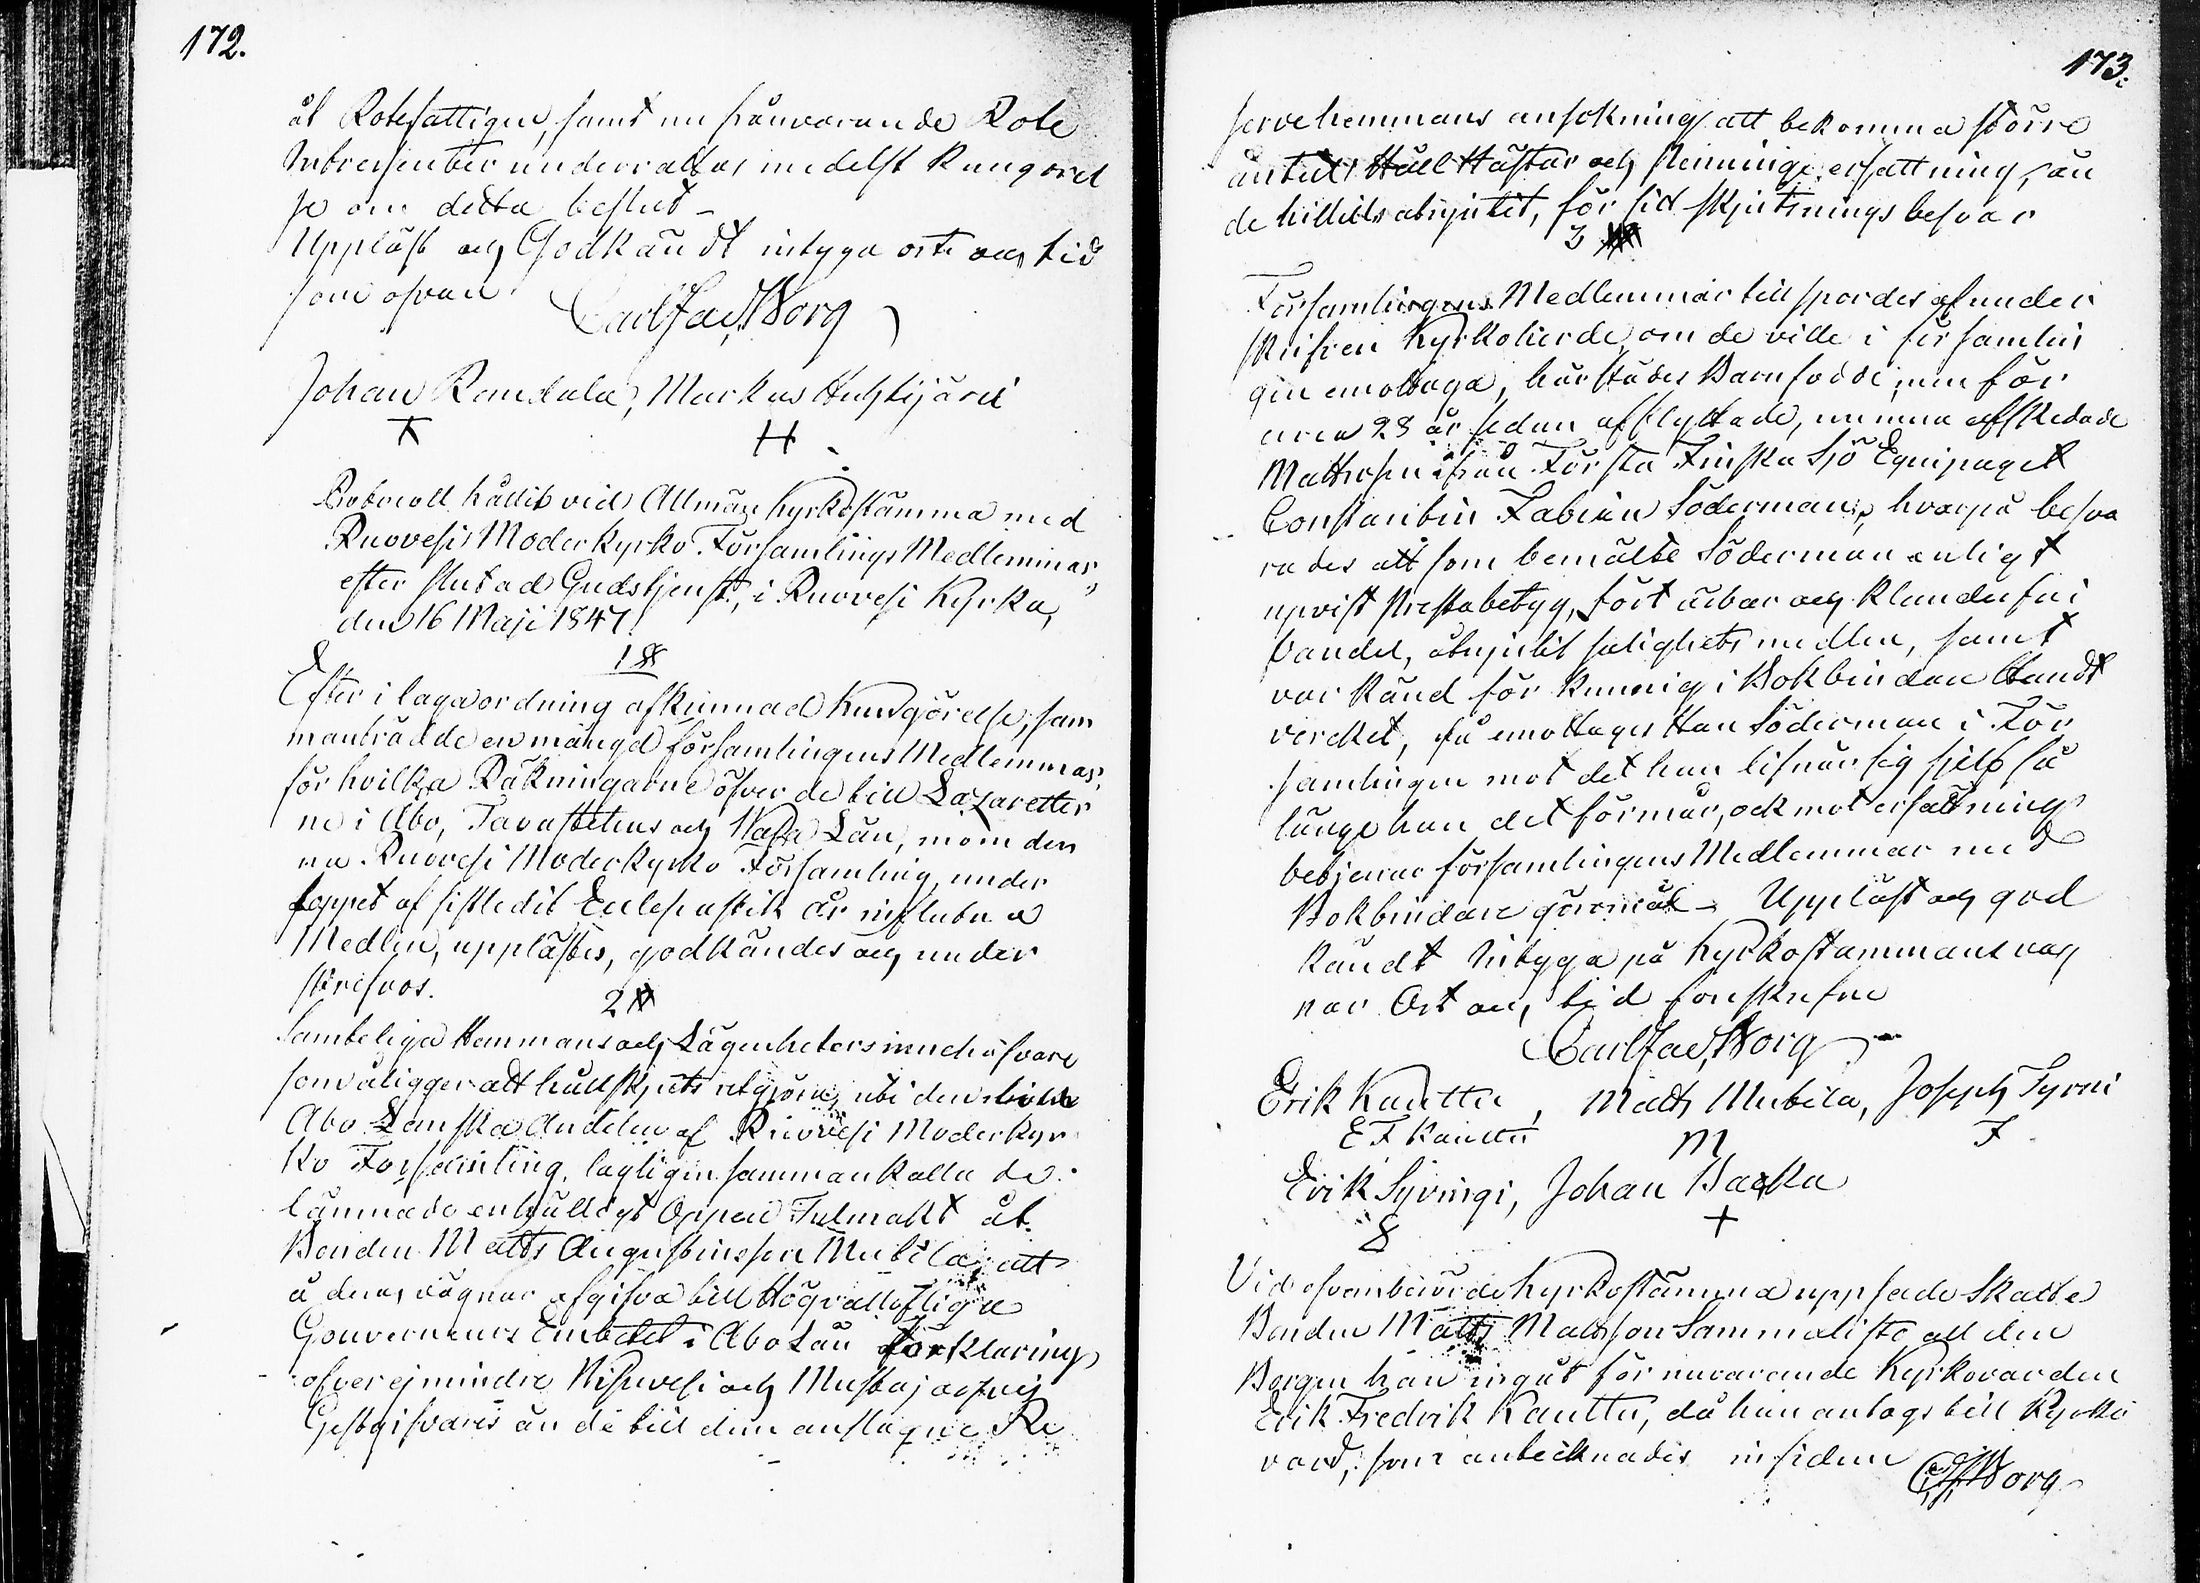 172.
åt Rotefattigue, samt nu frånvarande Rote
Intressenter underrättas medelst kungörel
se om detta beslut_
Uppläst och Godkändt intyga ort och tid
som ofvan. Carl Jac. Worg
Johan Randala, Markus Huhtijärvi
H
Protocoll hållit vid Allmän Kyrkostämma med
Ruovesi Moderkyrko Församlings Medlemmar,
efter slutad Gudstjenst, i Ruovesi Kyrka,
den 16 Maji 1847.
1 §
Efter i laga ordning afkunnad Kungörelse, sam
manträdde en mängd församlingens Medlemmar,
för hvilka Räkningarne öfver de till Lazaretter
ne i Åbo, Tavastehus och Wasa Län, inom den
na Ruovesi Moderkyrko Församling, under
loppet af sistledit Ecclesiastik år influtna
Medlen, upplästes, godkändes och under
skrefvos.
2 §
Samtelige Hemmans och Lägenheters innehafvare
som åligger att hållskjuts utgöra, uti den
Åbo Länska Andelen af Ruovesi Moderkyr
ko Församling, lagligen sammankallade
lämnade enhälligt Öppen Fulmakt åt
Bonden Matts Augustinsson Mutila, att
å deras vägnar afgifva till Högvälloflige
Gouverneurs Embetet i Åbo Län förklaring
öfver ej mindre Wisuvesi och Mustajärvi
Gestgifvares än de till dem anslagne Re
173.
servehemmans ansökning att bekomma större
antal Håll Hästar och penninge ersättning, än
de hittills åtnjutit, för sid skjutsnings besvär
3 §
Församlingens Medlemmar tillspordes af under
skrifven Kyrkoherde, om de ville i försämlin
gen emottaga, härstädes Barnfödde, men för
circa 28 år sedan afflyttade, numera afskedade
Matrosen ifrån Första Finska Sjö Equipaget
Constantin Fabian Söderman, hvarpå besva
rades att som bemälte Söderman enligt
upvist Prestabetyg, fört ärbar och klanderfri
vandel, åtnjutit salighets medlen, samt
var känd för kunnig i Bokbindare Handt
verket, så emottages Han Söderman i För
samlingen mot det han lifnär sig sjelf så
länge han det förmår, och mot ersättning
betjenar församlingens Medlemmar med
Bokbindare göromål_ Uppläst och god
kändt Intyga på Kyrkostämmans väg
nar Ort och tid förskrifne
Carl Jac. Worg
Erik Kauttu, Matts Mutila, Joseph Tyrni
E F Kauttu M T
Erik Syvingi, Johan Backa
S +
Vid ofvanberörde Kyrkostämma uppsade Skatte
Bonden Matts Mattsson Sammalisto all den
Borgen han ingåt för nuvarande Kyrkovärden
Erik Fredrik Kauttu, då han antogs till Kyrko
värd, som antecknades in fidem
C. J. Worg